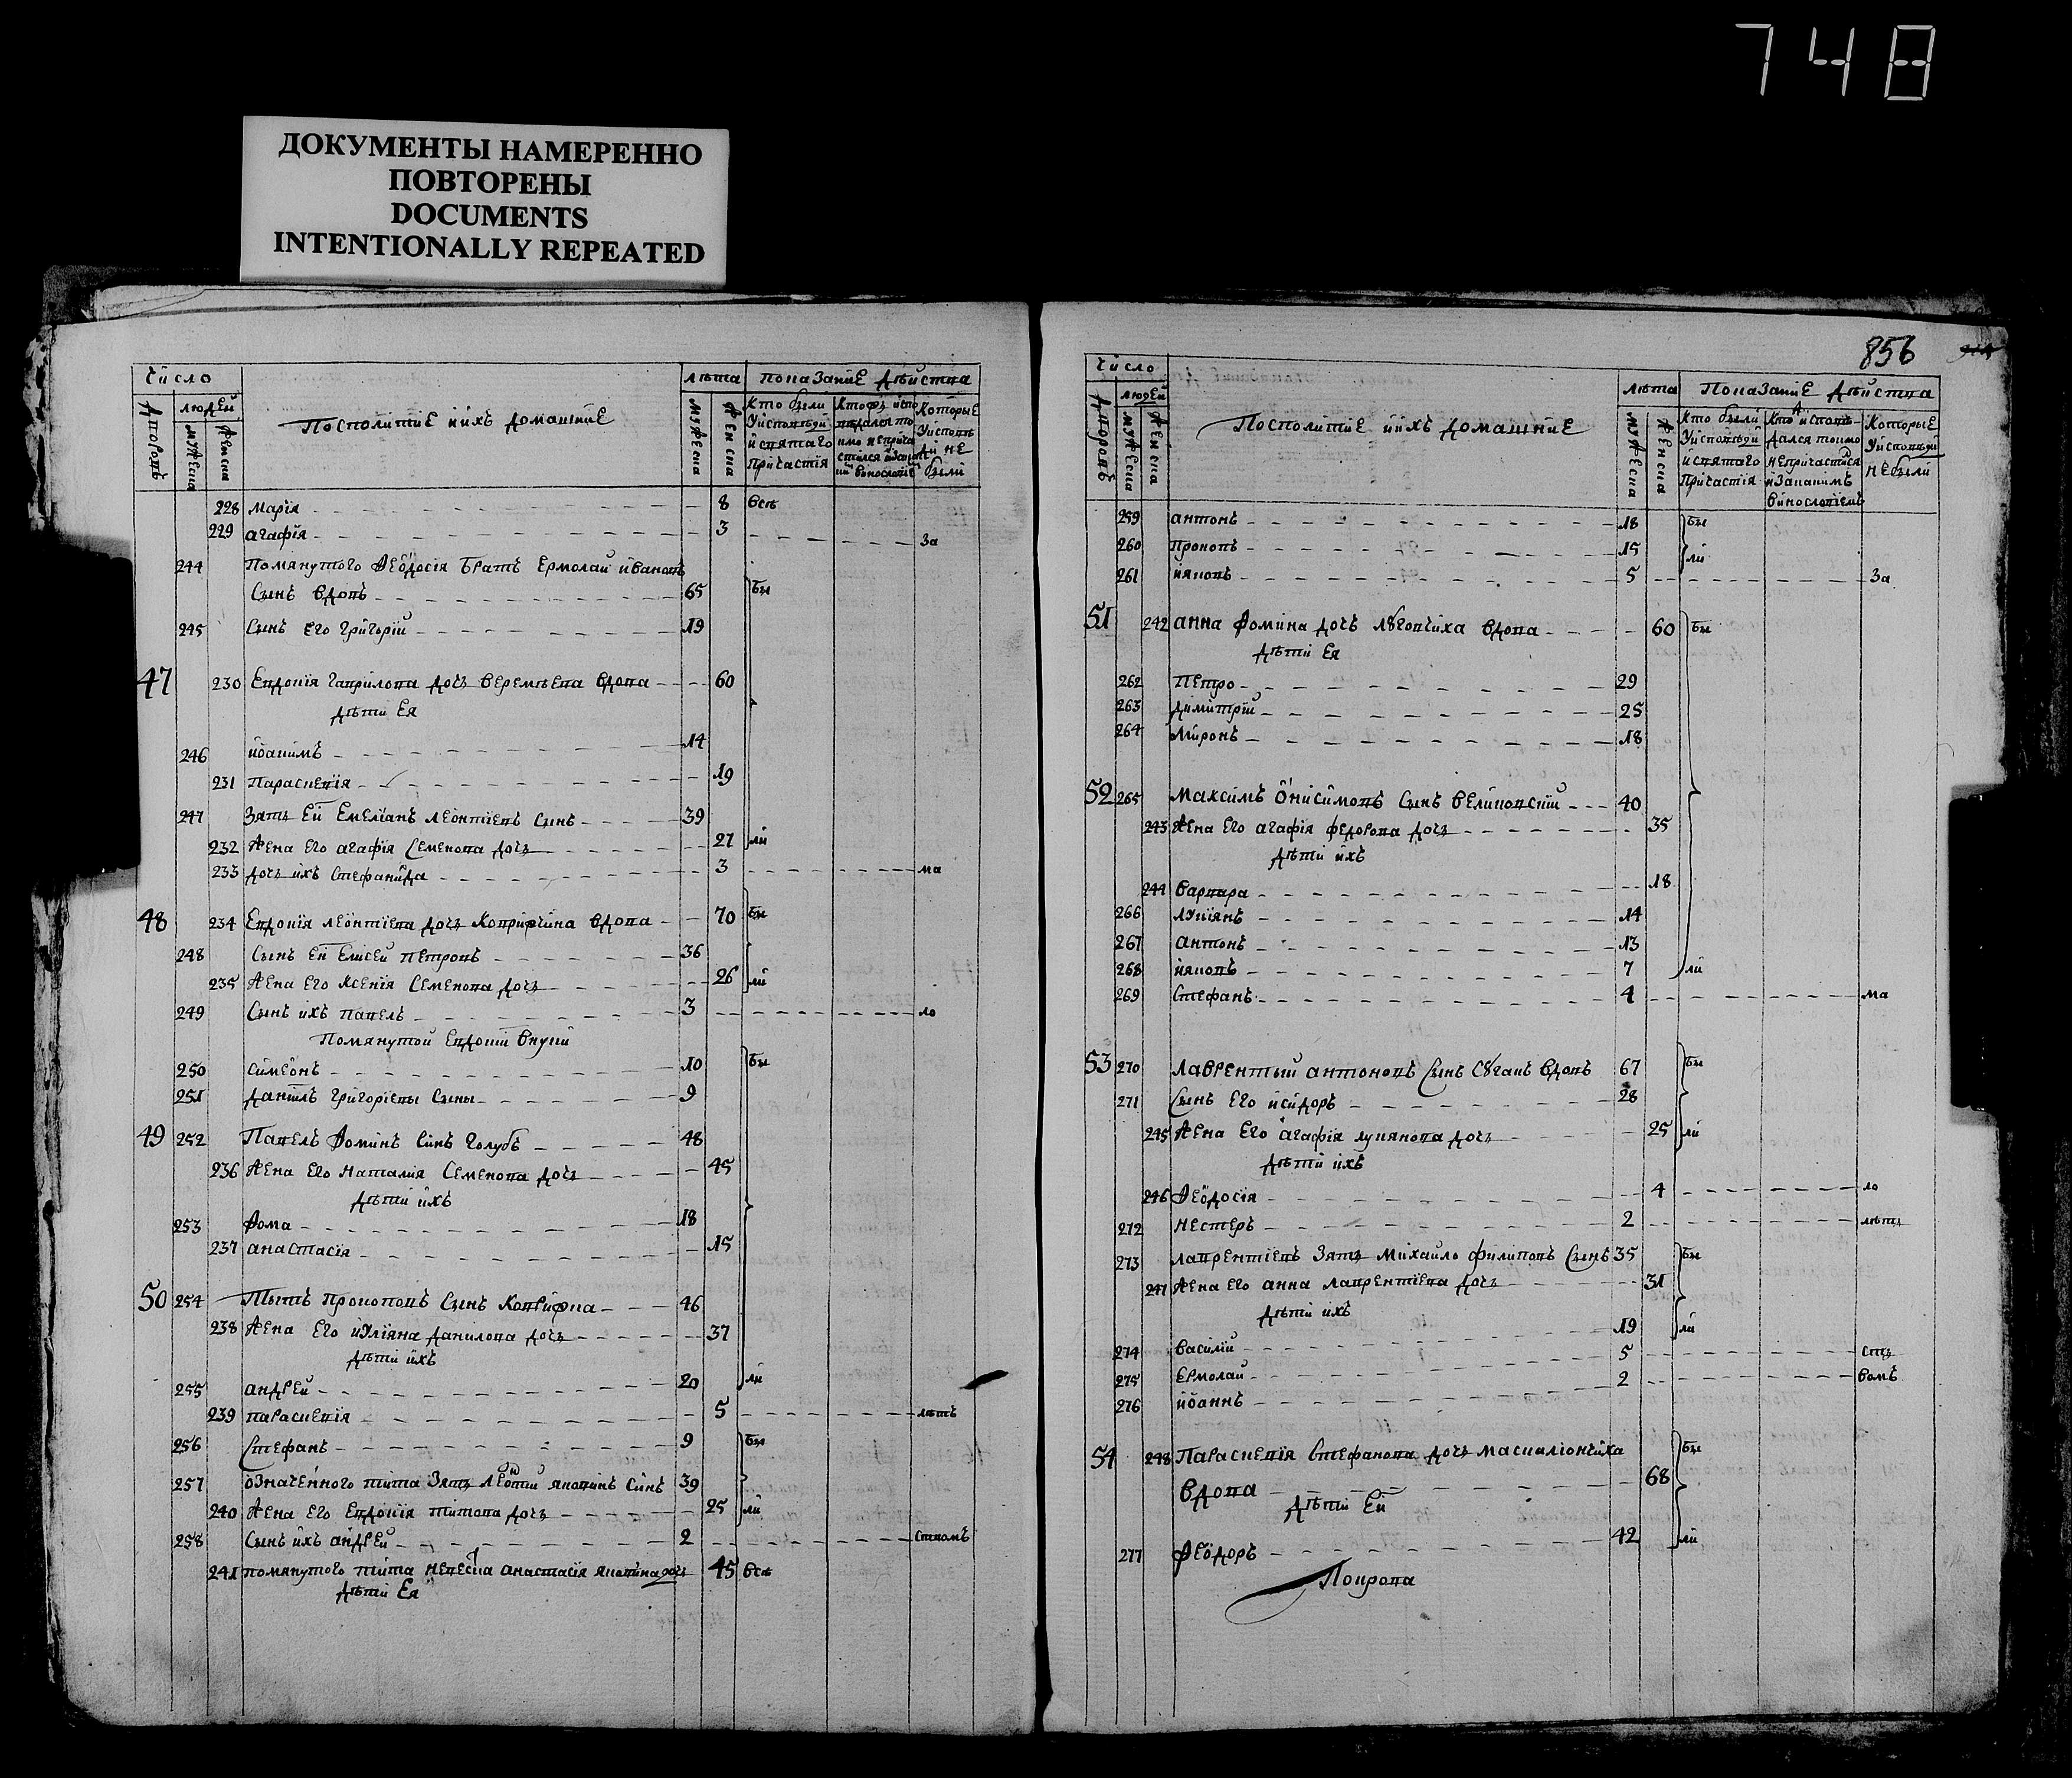 748
ДОКУМЕНТЫ НАМЕРЕННО
ПОВТОРЕНЫ
DOCUMENTS
INTENTIONALLY REPEATED
Число
людей
Посполитие иихъ домашние
лѣта
показание дѣиства
дворовъ
мужеска
женска
мужеска
женска
Кто были
Уисповѣди
исвятаго
Причастїя
Которые
Уисповѣ
ди не
были
228 Марїя 8 всѣ
229 агафїя 3 За
244 Помянутого Ѳеѡдосїя братъ Ермолай ивановъ
Сынъ вдовъ 65 бы
245 Сынъ Его григорїй 19
47 230 Евдокїя гаврилова дочъ веремѣева вдова 60
дѣти Ея
246 иоакимъ 14
231 Параскевїя 19
247 Зять Ей Емелїанъ леѡнтїевъ Сынъ 39
232 Жена Его агафїя Семенова дочъ 27 ли
233 дочъ ихъ Стефанида 3 ма
48 234 Евдокїя леѡнтїева дочъ Ковришина вдова 70 бы
248 Сынъ Ей Елисей Петровъ 36
235 Жена Его Ксенїя Семенова дочъ 26 ли
249 Сынъ ихъ Павелъ 3 ло
Помянутой Евдокїи внуки
250 Симеѡнъ 10 бы
251 Данїилъ григорїевы Сыны 9
49 252 Павелъ Ѳоминъ Синъ голубъ 48
236 Жена Его Наталия Семенова дочъ 45
Дѣти ихъ
253 Ѳома 18
237 анастасїя 15
50 254 Тытъ Прокоповъ Сынъ 46
238 Жена Его иулїяна данилова дочъ 37
Дѣти ихъ
255 андрей 20 ли
239 параскевїя 5 лѣтъ
256 Стефанъ 9 бы
257 означенного тита Зять леѡтїй яковинъ Синъ 39
240 Жена Его Евдокїя титова дочъ 25 ли
258 Сынъ ихъ андрей 2 ством
241 помянутого тита невѣстка анастасїя яковина дочъ 45 всѣ
Дѣти Ея
856
Число
людей
Посполитие иихъ домашние
лѣта
Показание дѣиства
дворовъ
мужеска
женска
мужеска
женска
Кто были
Уисповѣди
исвятаго
Причастїя
Кто исповѣ-
дался токмо
непричастися
иЗакакимъ
винословїемъ
Которые
Уисповѣди
не были
259 антонъ 18 бы
260 Прокопъ 15 ли
261 ияковъ 5 За
51 242 анна Ѳомина дочъ лѹговчиха вдова 60 бы
Дѣти Ея
262 Петро 29
263 Димитрїй 25
264 Миронъ 18
52 265 Максимъ Ѡнисимовъ Сынъ великовский 40
243 Жена Его агафїя федорова дочъ 35
Дѣти ихъ
244 варвара 18
266 лукїянъ 14
267 антонъ 13
268 ияковъ 7 ли
269 Стефанъ 4 ма
53 270 Лаврентый антоновъ Сынъ Сѹганъ вдовъ 67 бы
271 Сынъ Его исидоръ 28
245 Жена Его агафїя лукянова дочъ 25 ли
Дѣти ихъ
246 Ѳеѡдосїя 4 ло
272 нестеръ 2 лѣтъ
273 лаврентїевъ Зять михайло филиповъ Сынъ 35 бы
247 Жена Его анна лаврентїева дочъ 31
Дѣти ихъ
274 василїй 19 ли
275 Ермолай 5 ств
276 иоаннъ 2 вомъ
54 248 Параскевїя Стефанова дочъ маскалїончиха бы
вдова 68
Дѣти Ей
277 Ѳеѡдоръ 42 ли
Покрова